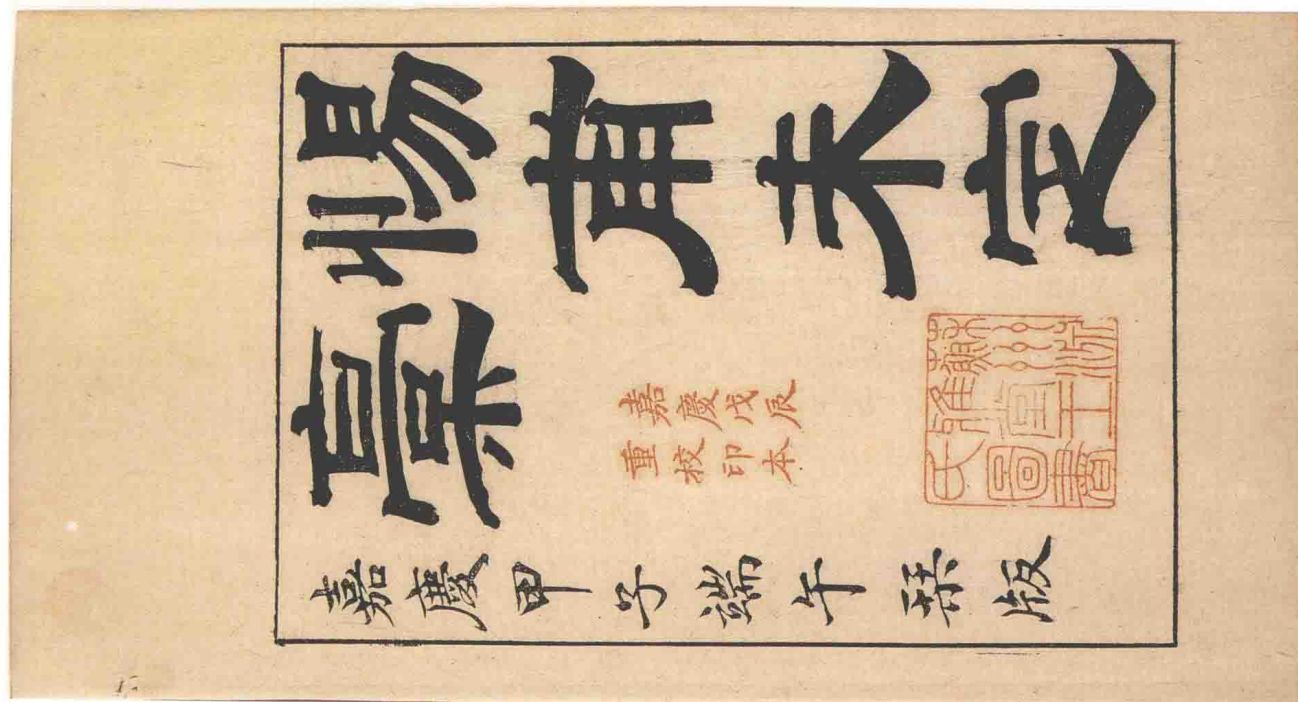 惕甫未定
稾
嘉慶戊辰
重校印本
嘉慶甲子端午栞版